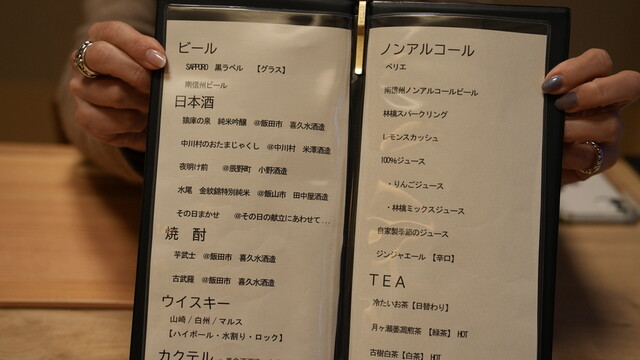 ビール
SAPPORO 黒ラベル 【グラス】
南信州ビール
日本酒
猿庫の泉 純米吟醸 @飯田市 喜久水酒造
中川村のおたまじゃくし @中川村 米澤酒造
夜明け前 @辰野町 小野酒造
水尾 金紋錦特別純米 @飯山市 田中屋酒造
その日まかせ @その日の献立にあわせて...
焼 酎
芋武士 @飯田市 喜久水酒造
古武羅 @飯田市 喜久水酒造
ウイスキー
山崎/白州/マルス
【ハイボール・水割り・ロック】
カクテル
ノンアルコール
ペリエ
南信州ノンアルコールビール
林檎スパークリング
レモンスカッシュ
100%ジュース
・りんごジュース
・林檎ミックスジュース
自家製季節のジュース
ジンジャエール 【辛口】
TEA
冷たいお茶【日替わり】
月ヶ瀬萎凋煎茶 【緑茶】 HOT
古樹白茶【白茶】 HOT